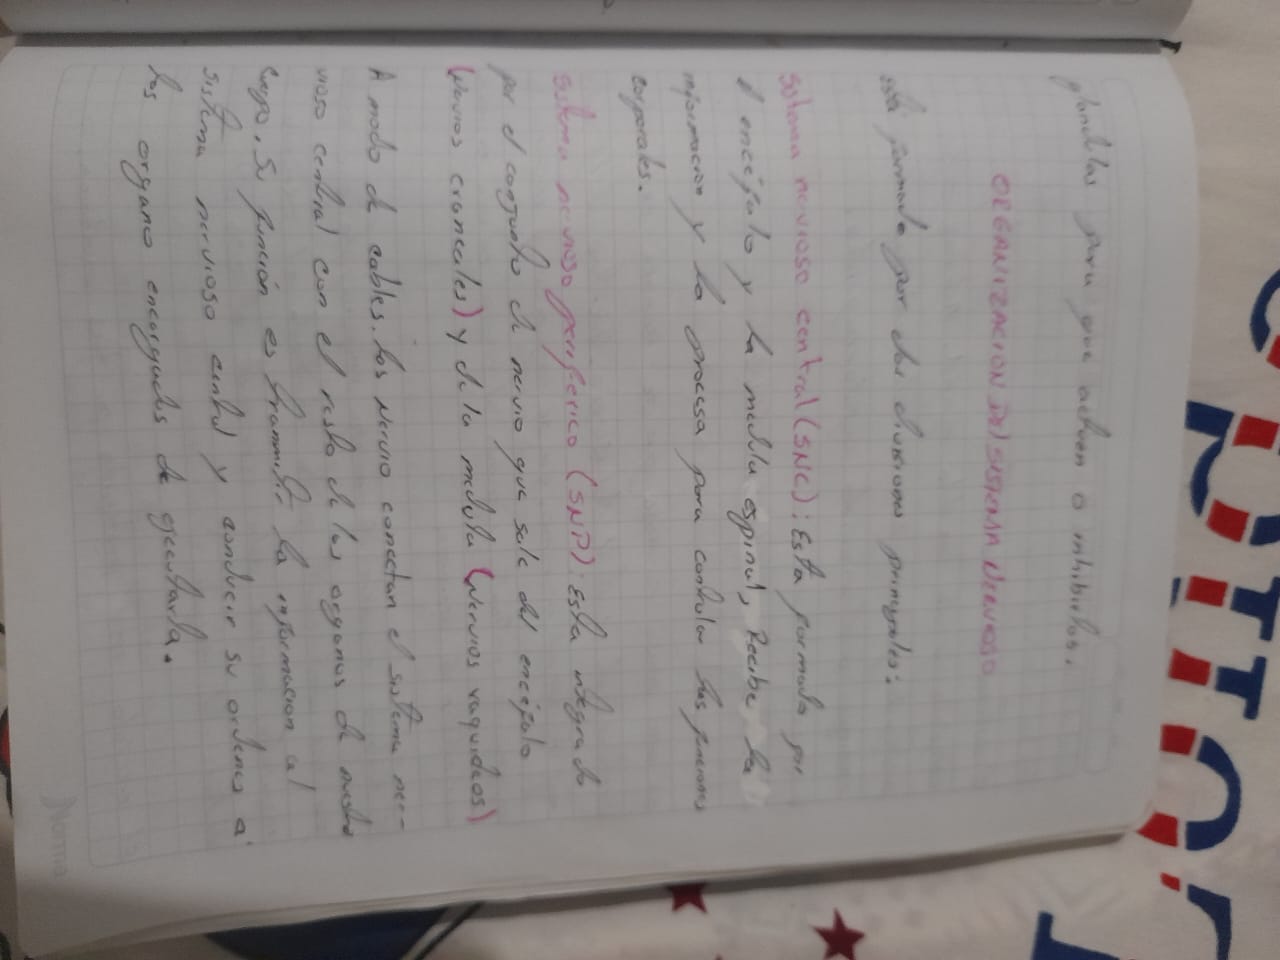 glandulas para que activen o inhibirlos.
ORGANIZACION DEL SISTEMA NERVIOSO
está formado por dos divisiones principales:
Sistema nervioso central (SNC): Esta formado por
el encéfalo y la medula espinal, Recibe la
informacion y la procesa para controlar las funciones
corporales.
Sistema nervioso periferico (SNP): Esta integrado
por el conjunto de nervio que sale del encefalo
(Nervios craneales) y de la medula (Nervios raquideos)
A modo de cables. los Nervio conectan el sistema ner-
vioso central con el resto de los organos de nuestro
cuerpo. Su función es transmitir la informacion al
sistema nervioso central y conducir su ordenes a
los organo encargados de ejecutarla.
Norma